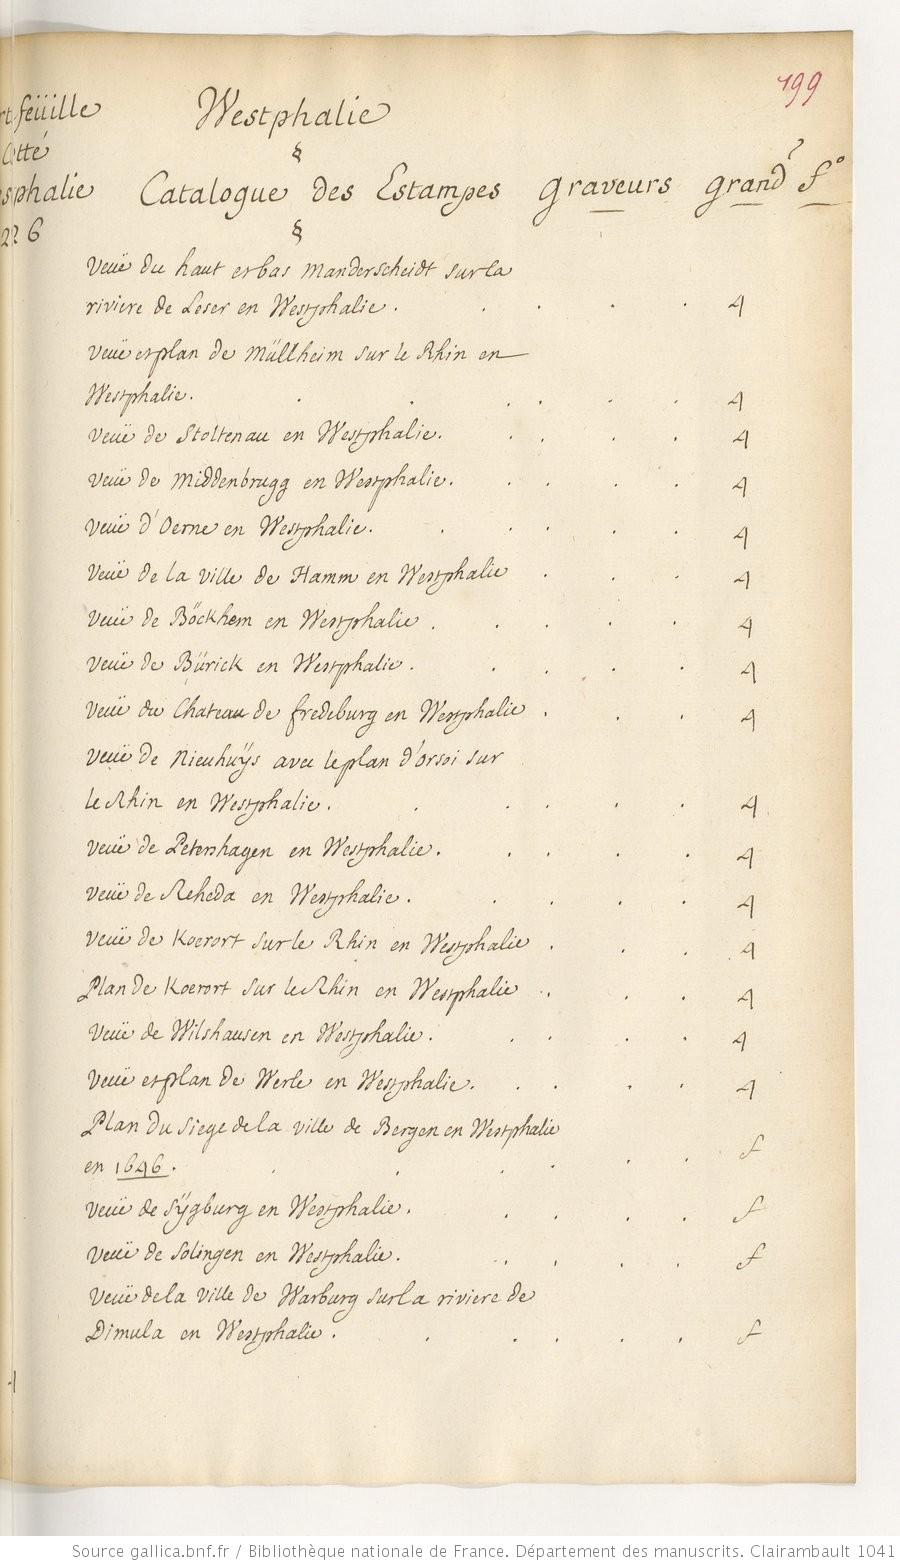 199
feüille
Cotté
sphalie
226
Westphalie
§
Catalogue des Estampes graveurs grand? f°
§
Veuë du haut et bas Manderscheidt sur la
riviere de Leser en Westphalie. 4
Veuë et plan de Müllheim sur le Rhin en
Westphalie. 4
Veuë de Stoltenau en Westphalie. 4
Veuë de Middenbrugg en Westphalie. 4
Veuë d'Oerne en Westphalie. 4
Veuë de la ville de Hamm en Westphalie 4
Veuë de Böckhem en Westphalie. 4
Veuë de Bürick en Westphalie. 4
Veuë du Chateau de fredeburg en Westphalie. 4
Veuë de Nieuhuÿs avec le plan d'orsoi sur
le Rhin en Westphalie. 4
Veuë de Petershagen en Westphalie. 4
Veuë de Reheda en Westphalie. 4
Veuë de Koerort sur le Rhin en Westphalie. 4
Plan de Koerort sur le Rhin en Westphalie. 4
Veuë de Wilshausen en Westphalie. 4
Veuë et plan de Werle en Westphalie. 4
Plan du siege de la ville de Bergen en Westphalie
en 1646. f
Veuë de Sÿgburg en Westphalie. f
Veuë de Solingen en Westphalie. f
Veuë de la ville de Warburg sur la riviere de
Dimula en Westphalie. f
Source gallica.bnf.fr / Bibliothèque nationale de France. Département des manuscrits. Clairambault 1041